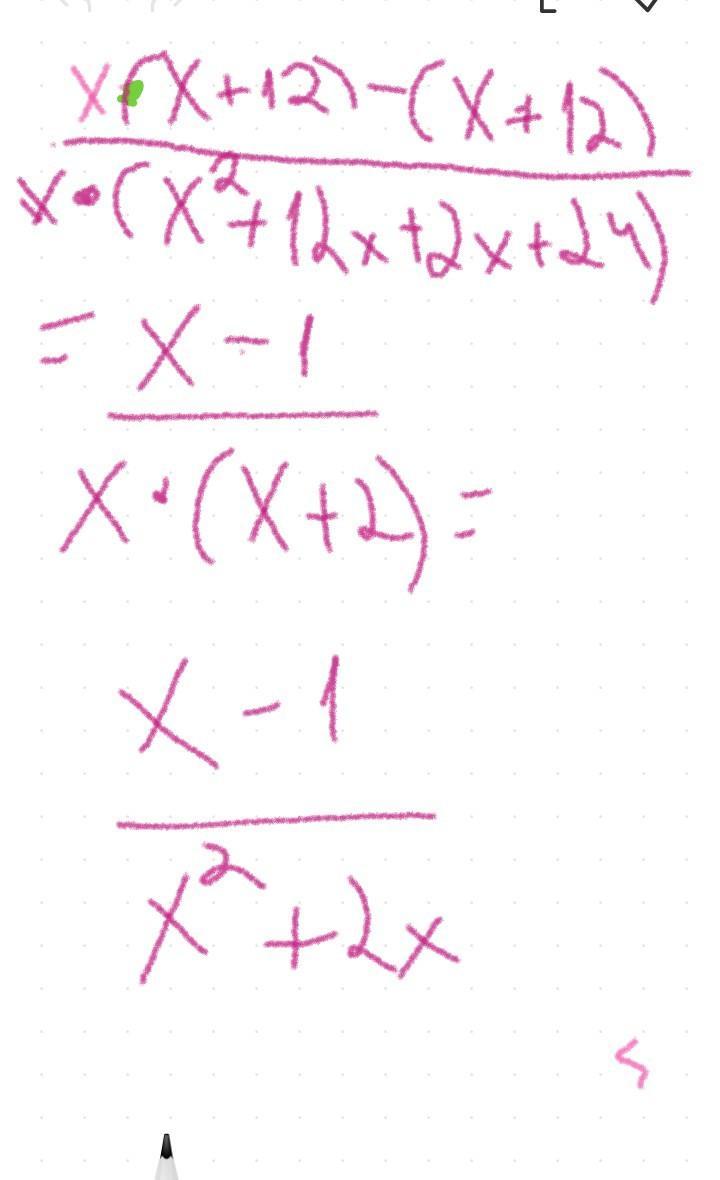 x·(x+12)-(x+12)
x·(x²+12x+2x+24)
= x-1
x·(x+2) =
x-1
x²+2x